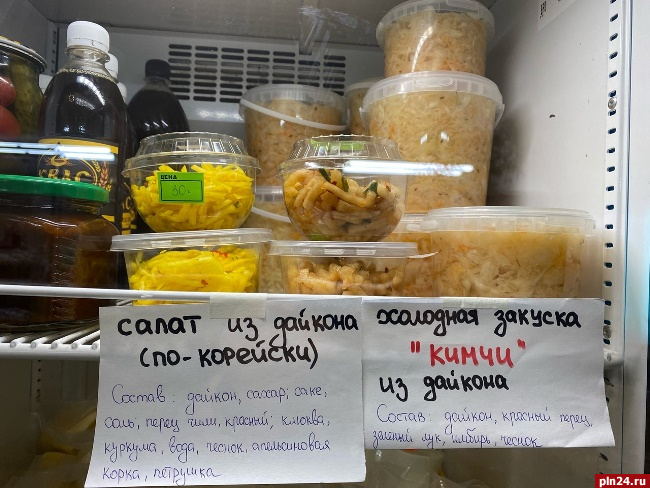 ЦЕНА
30.
салат из дайкона
(по-корейски)
Состав: дайкон, сахар; саке,
соль, перец чили, красный; клюква,
куркума, вода, чеснок, апельсиновая
корка, петрушка
холодная закуска
"КИМЧИ"
из дайкона
Состав: дайкон, красный перец,
зеленый лук, имбирь, чеснок
pln24.ru